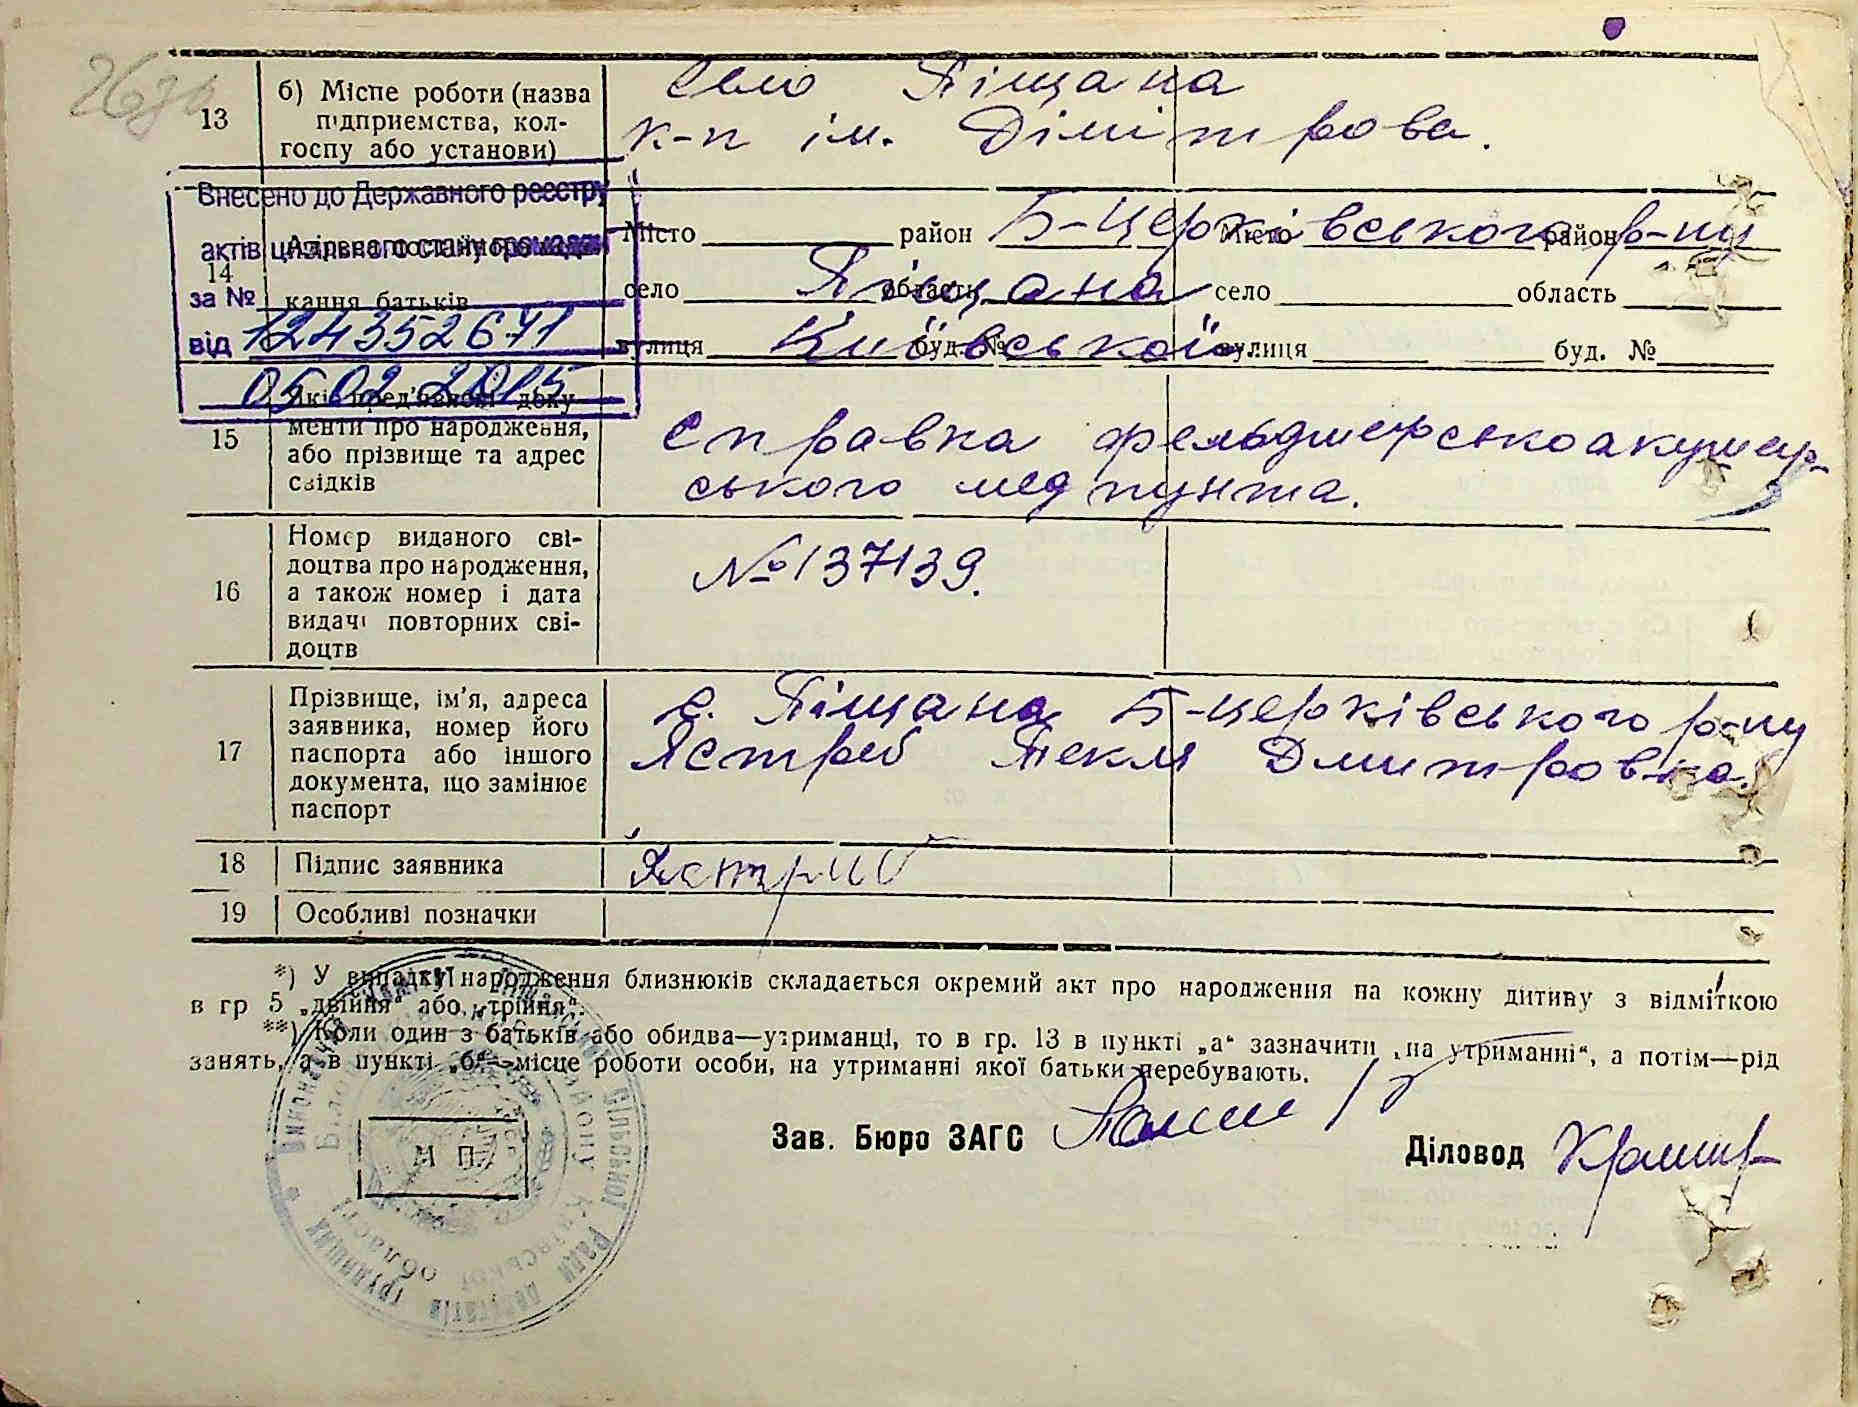 13
б) Місце роботи (назва
підприємства, кол-
госпу або установи)
село Піщана
к-п ім. Дімітрова.
Внесено до Державного реєстру
актів цивільного стану громадян
за №
від 124352671
05.02.2015
14
Адреса постійного
кання батьків
Місто район Б-Церківського р-ну
Місто район
село Піщана область
село область
вулиця Київської буд. №
вулиця буд. №
15
Які пред'явлені доку-
менти про народження,
або прізвище та адрес
свідків
Справка фельдшерськоакушер-
ського медпункта.
16
Номер виданого сві-
доцтва про народження,
а також номер і дата
видачі повторних сві-
доцтв
№137139.
17
Прізвище, ім'я, адреса
заявника, номер його
паспорта або іншого
документа, що замінює
паспорт
с. Піщана Б-церківського р-ну
Ястреб Текля Дмитровна.
18
Підпис заявника
19
Особливі позначки
*) У випадку народження близнюків складається окремий акт про народження на кожну дитину з відміткою
в гр 5 „двійня“ або „трійня“.
**) Коли один з батьків або обидва—утриманці, то в гр. 13 в пункті „а“ зазначити „на утриманні“, а потім—рід
занять, а в пункті „б“—місце роботи особи, на утриманні якої батьки перебувають.
Зав. Бюро ЗАГС
Діловод
М П.
Сільської Ради депутатів трудящих
району Київської області